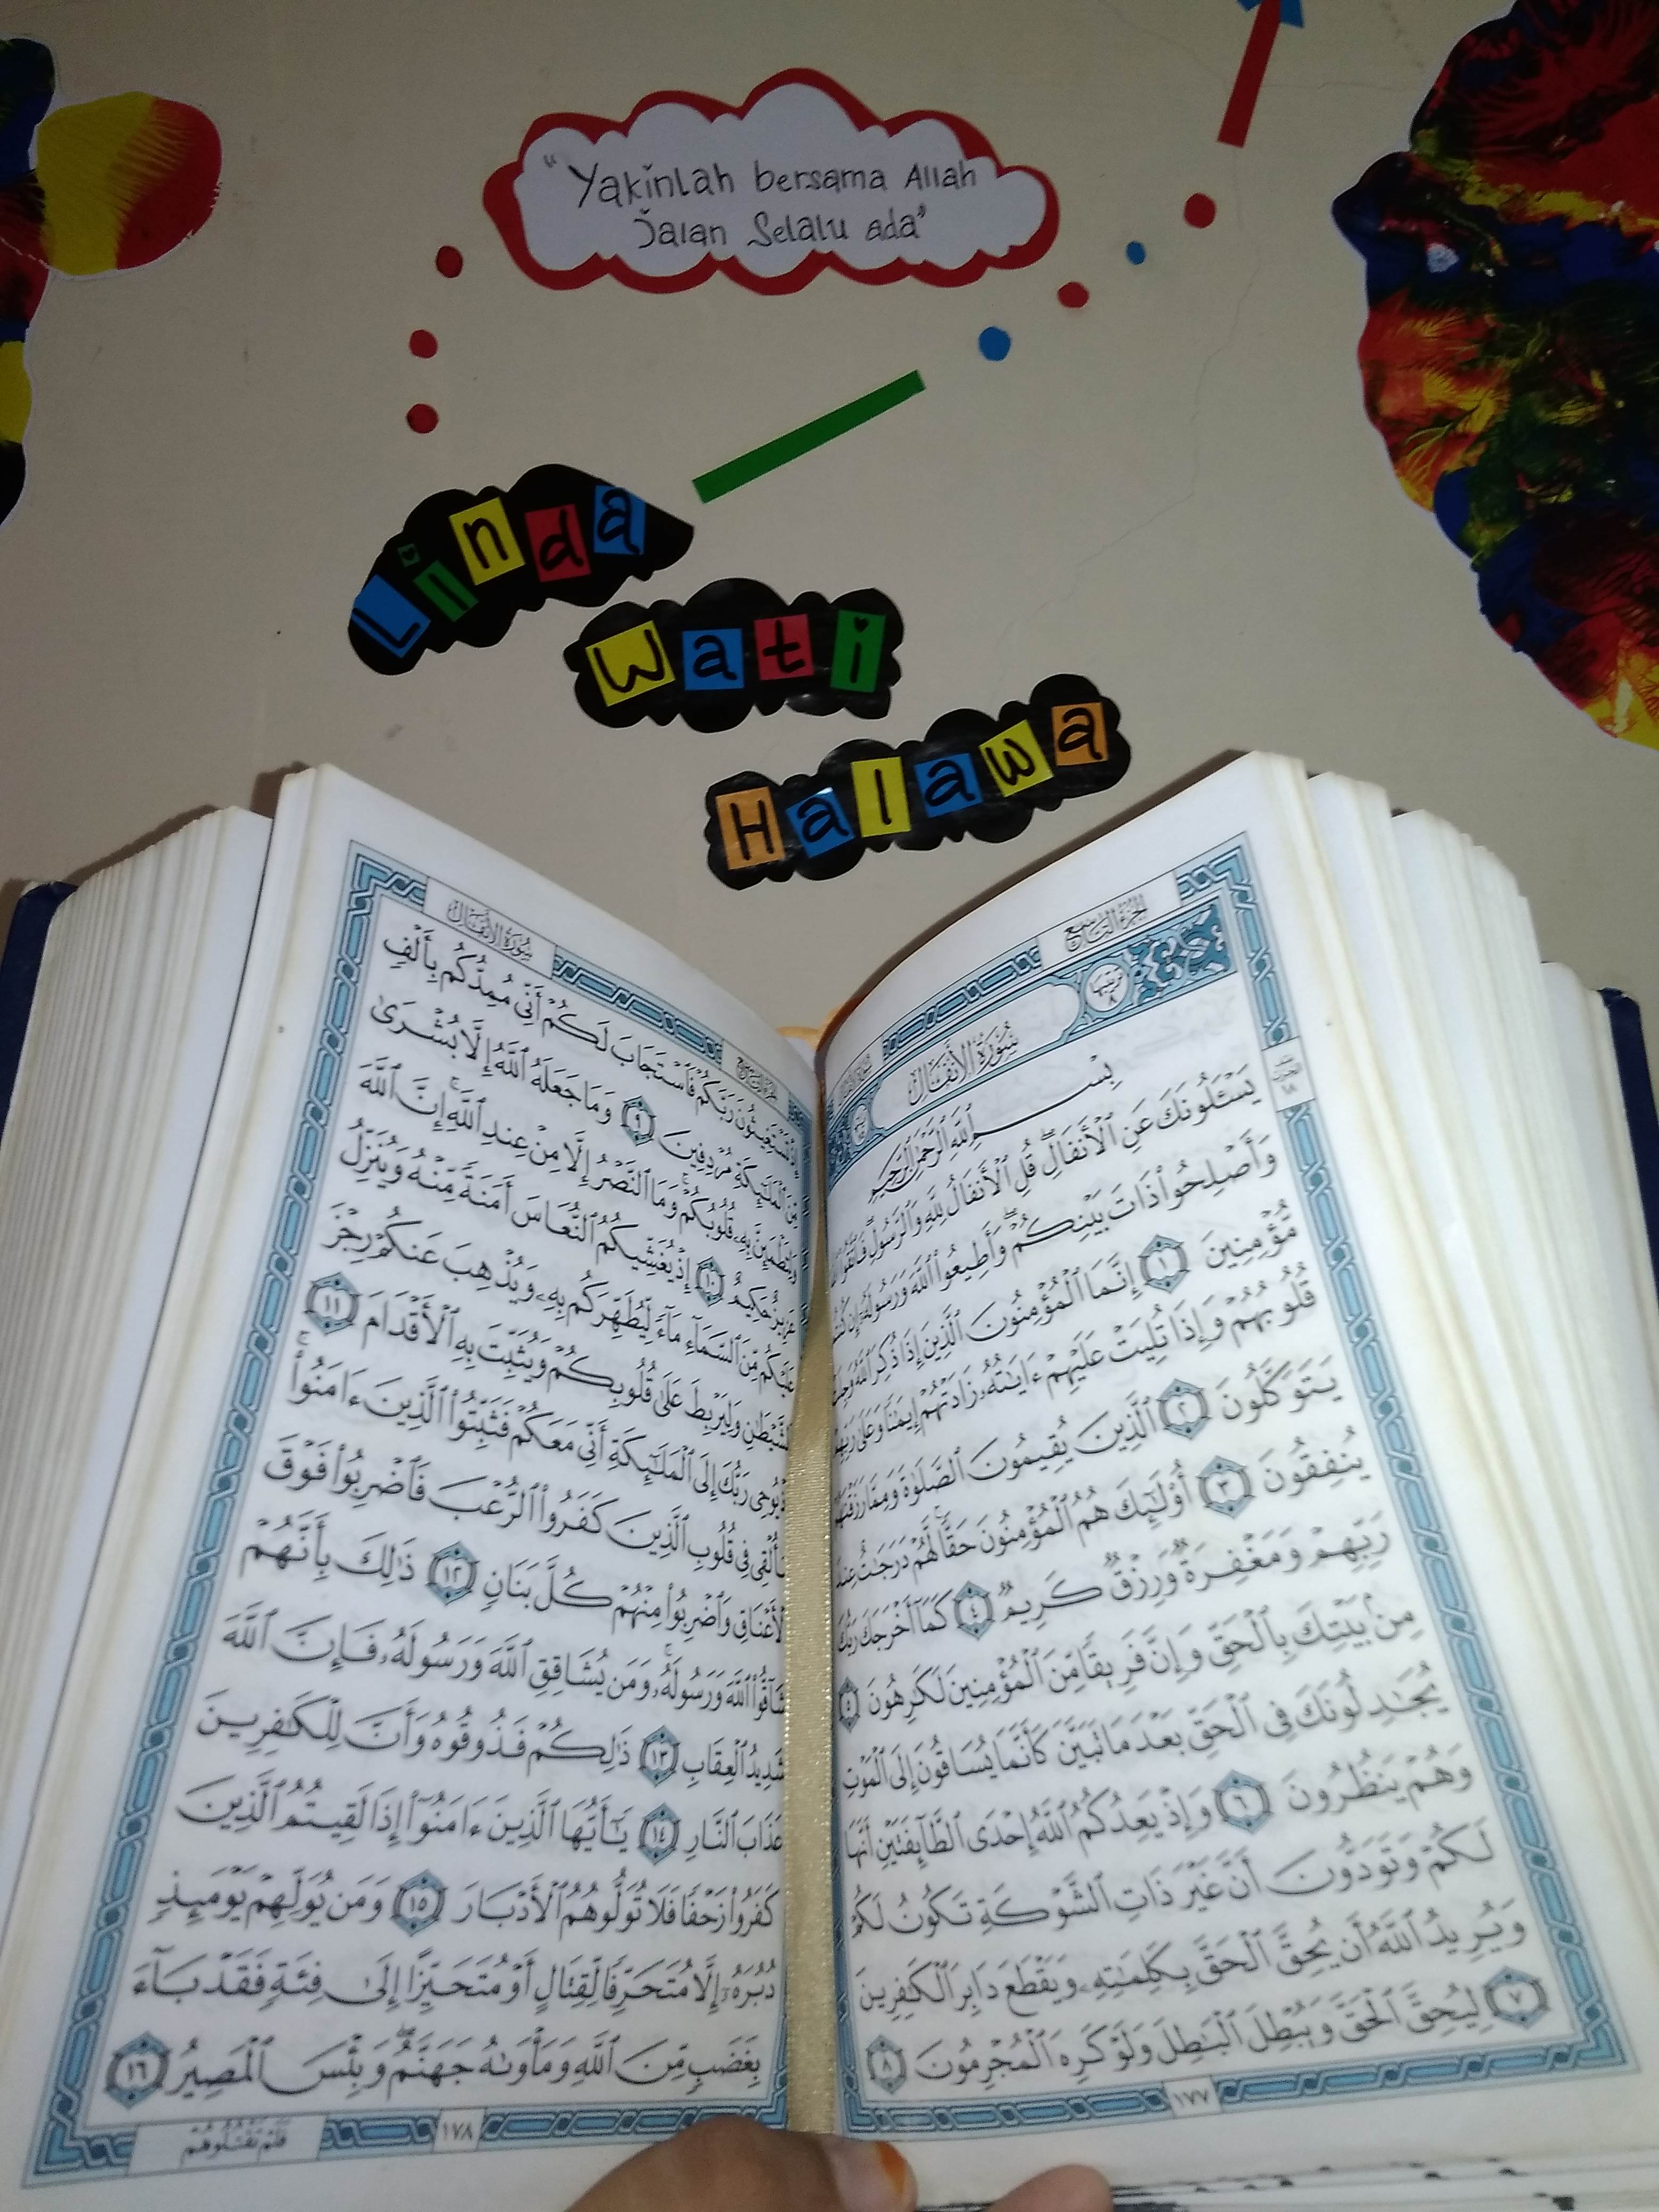 "Yakinlah bersama Allah
Jalan Selalu ada"
Linda
Wati
Halawa
الجزء التاسع
سُورَةُ الأَنفَال
بِسْمِ ٱللَّهِ ٱلرَّحْمَٰنِ ٱلرَّحِيمِ
يَسْـَٔلُونَكَ عَنِ ٱلْأَنفَالِ ۖ قُلِ ٱلْأَنفَالُ لِلَّهِ وَٱلرَّسُولِ ۖ فَٱتَّقُوا۟
وَأَصْلِحُوا۟ ذَاتَ بَيْنِكُمْ ۖ وَأَطِيعُوا۟ ٱللَّهَ وَرَسُولَهُۥٓ إِن كُنتُم
مُّؤْمِنِينَ ١ إِنَّمَا ٱلْمُؤْمِنُونَ ٱلَّذِينَ إِذَا ذُكِرَ ٱللَّهُ وَجِلَتْ
قُلُوبُهُمْ وَإِذَا تُلِيَتْ عَلَيْهِمْ ءَايَٰتُهُۥ زَادَتْهُمْ إِيمَٰنًا وَعَلَىٰ رَبِّهِمْ
يَتَوَكَّلُونَ ٢ ٱلَّذِينَ يُقِيمُونَ ٱلصَّلَوٰةَ وَمِمَّا رَزَقْنَٰهُمْ
يُنفِقُونَ ٣ أُو۟لَٰٓئِكَ هُمُ ٱلْمُؤْمِنُونَ حَقًّا ۚ لَّهُمْ دَرَجَٰتٌ عِندَ
رَبِّهِمْ وَمَغْفِرَةٌ وَرِزْقٌ كَرِيمٌ ٤ كَمَآ أَخْرَجَكَ رَبُّكَ
مِنۢ بَيْتِكَ بِٱلْحَقِّ وَإِنَّ فَرِيقًا مِّنَ ٱلْمُؤْمِنِينَ لَكَٰرِهُونَ ٥
يُجَٰدِلُونَكَ فِى ٱلْحَقِّ بَعْدَ مَا تَبَيَّنَ كَأَنَّمَا يُسَاقُونَ إِلَى ٱلْمَوْتِ
وَهُمْ يَنظُرُونَ ٦ وَإِذْ يَعِدُكُمُ ٱللَّهُ إِحْدَى ٱلطَّآئِفَتَيْنِ أَنَّهَا
لَكُمْ وَتَوَدُّونَ أَنَّ غَيْرَ ذَاتِ ٱلشَّوْكَةِ تَكُونُ لَكُمْ
وَيُرِيدُ ٱللَّهُ أَن يُحِقَّ ٱلْحَقَّ بِكَلِمَٰتِهِۦ وَيَقْطَعَ دَابِرَ ٱلْكَٰفِرِينَ
٧ لِيُحِقَّ ٱلْحَقَّ وَيُبْطِلَ ٱلْبَٰطِلَ وَلَوْ كَرِهَ ٱلْمُجْرِمُونَ ٨
١٧٧
سُورَةُ الأَنفَال
إِذْ تَسْتَغِيثُونَ رَبَّكُمْ فَٱسْتَجَابَ لَكُمْ أَنِّى مُمِدُّكُم بِأَلْفٍ
مِّنَ ٱلْمَلَٰٓئِكَةِ مُرْدِفِينَ ٩ وَمَا جَعَلَهُ ٱللَّهُ إِلَّا بُشْرَىٰ
وَلِتَطْمَئِنَّ بِهِۦ قُلُوبُكُمْ ۚ وَمَا ٱلنَّصْرُ إِلَّا مِنْ عِندِ ٱللَّهِ ۚ إِنَّ ٱللَّهَ
عَزِيزٌ حَكِيمٌ ١٠ إِذْ يُغَشِّيكُمُ ٱلنُّعَاسَ أَمَنَةً مِّنْهُ وَيُنَزِّلُ
عَلَيْكُم مِّنَ ٱلسَّمَآءِ مَآءً لِّيُطَهِّرَكُم بِهِۦ وَيُذْهِبَ عَنكُمْ رِجْزَ
ٱلشَّيْطَٰنِ وَلِيَرْبِطَ عَلَىٰ قُلُوبِكُمْ وَيُثَبِّتَ بِهِ ٱلْأَقْدَامَ ١١
إِذْ يُوحِى رَبُّكَ إِلَى ٱلْمَلَٰٓئِكَةِ أَنِّى مَعَكُمْ فَثَبِّتُوا۟ ٱلَّذِينَ ءَامَنُوا۟ ۚ
سَأُلْقِى فِى قُلُوبِ ٱلَّذِينَ كَفَرُوا۟ ٱلرُّعْبَ فَٱضْرِبُوا۟ فَوْقَ
ٱلْأَعْنَاقِ وَٱضْرِبُوا۟ مِنْهُمْ كُلَّ بَنَانٍ ١٢ ذَٰلِكَ بِأَنَّهُمْ
شَآقُّوا۟ ٱللَّهَ وَرَسُولَهُۥ ۚ وَمَن يُشَاقِقِ ٱللَّهَ وَرَسُولَهُۥ فَإِنَّ ٱللَّهَ
شَدِيدُ ٱلْعِقَابِ ١٣ ذَٰلِكُمْ فَذُوقُوهُ وَأَنَّ لِلْكَٰفِرِينَ
عَذَابَ ٱلنَّارِ ١٤ يَٰٓأَيُّهَا ٱلَّذِينَ ءَامَنُوٓا۟ إِذَا لَقِيتُمُ ٱلَّذِينَ
كَفَرُوا۟ زَحْفًا فَلَا تُوَلُّوهُمُ ٱلْأَدْبَارَ ١٥ وَمَن يُوَلِّهِمْ يَوْمَئِذٍ
دُبُرَهُۥٓ إِلَّا مُتَحَرِّفًا لِّقِتَالٍ أَوْ مُتَحَيِّزًا إِلَىٰ فِئَةٍ فَقَدْ بَآءَ
بِغَضَبٍ مِّنَ ٱللَّهِ وَمَأْوَىٰهُ جَهَنَّمُ ۖ وَبِئْسَ ٱلْمَصِيرُ ١٦
١٧٨
فَلَمْ تَقْتُلُوهُمْ